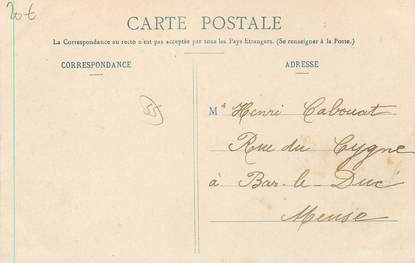 20€
CARTE POSTALE
La Correspondance au recto n'est pas acceptée par tous les Pays Etrangers. (Se renseigner à la Poste.)
CORRESPONDANCE
ADRESSE
55
Mr Henri Cabouat
Rue du Cygne
à Bar-le-Duc
Meuse